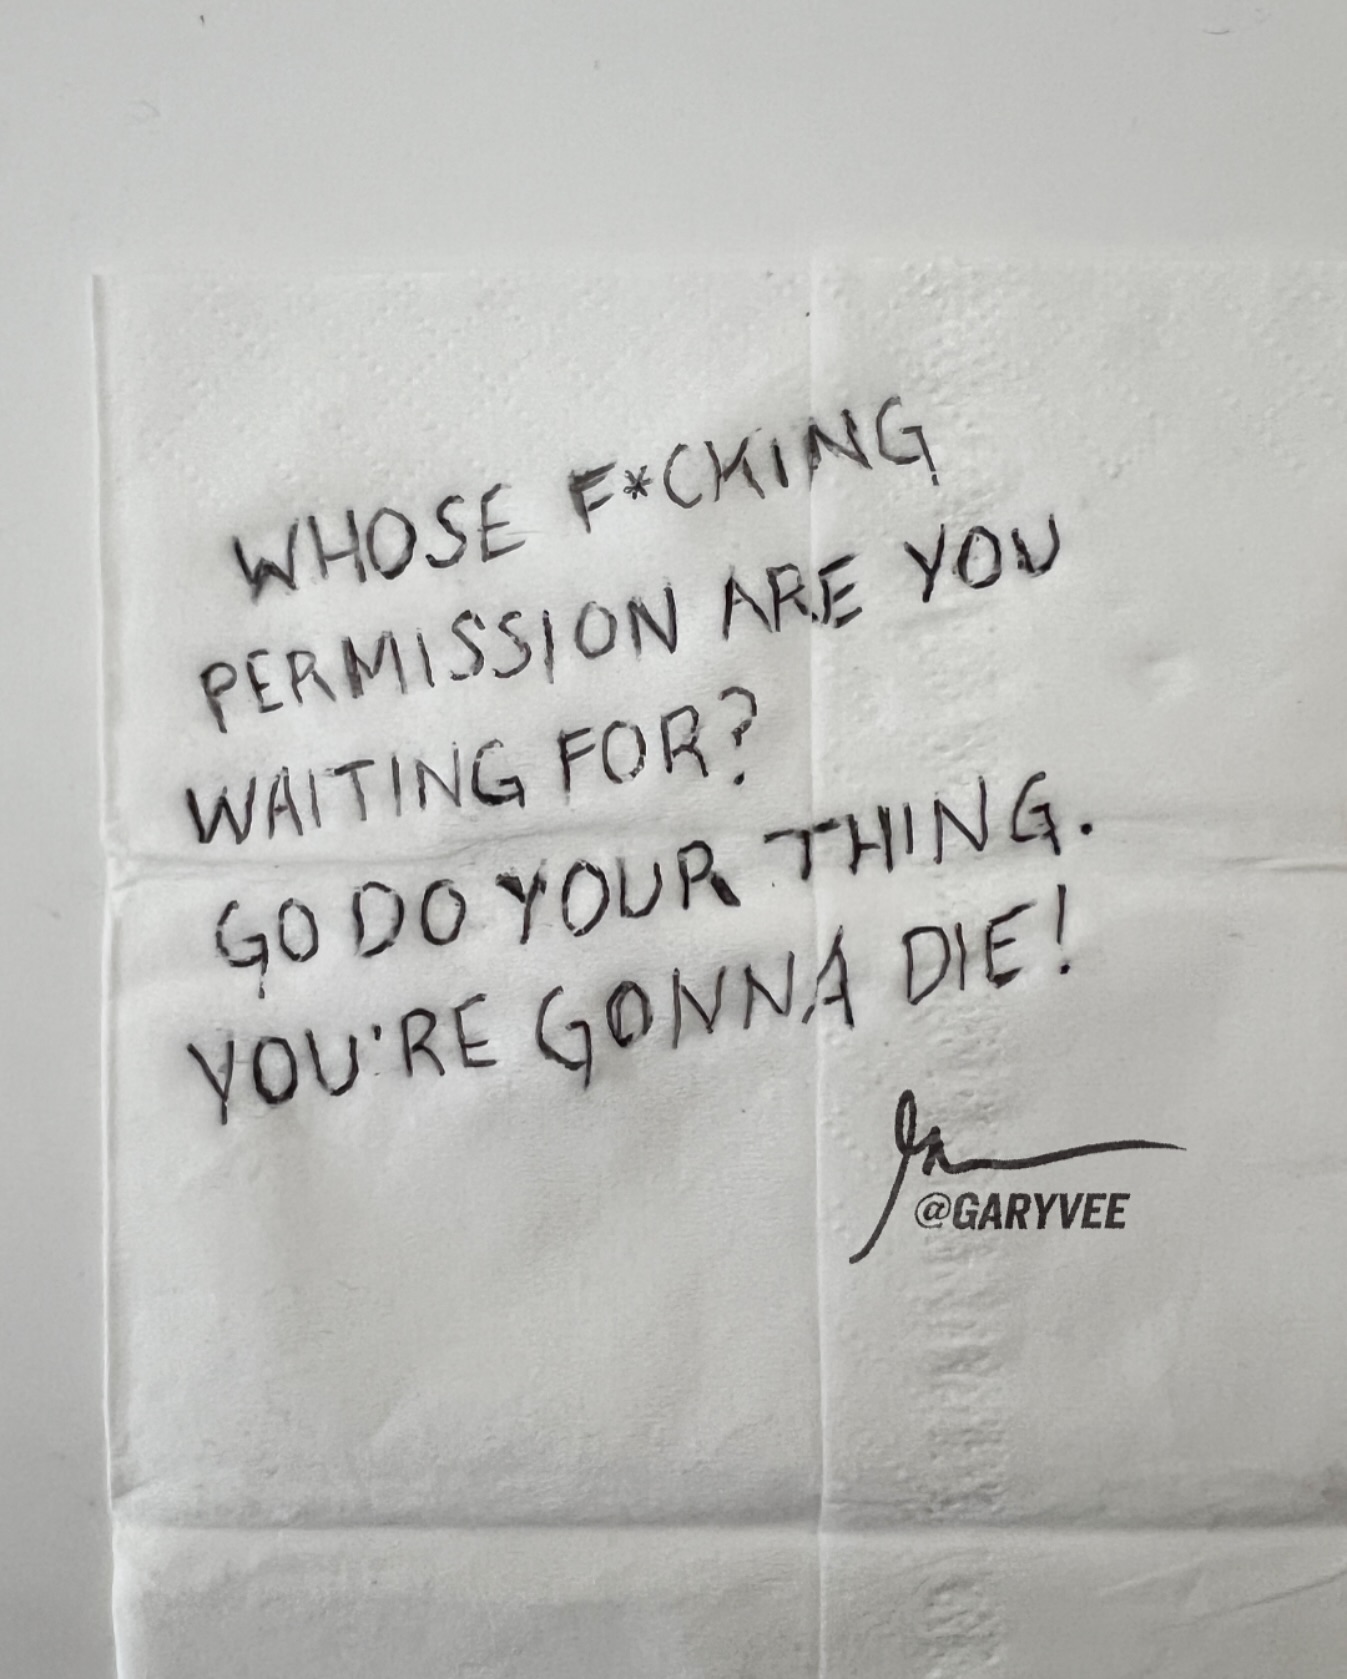 WHOSE F*CKING
PERMISSION ARE YOU
WAITING FOR?
GO DO YOUR THING.
YOU'RE GONNA DIE!
@GARYVEE